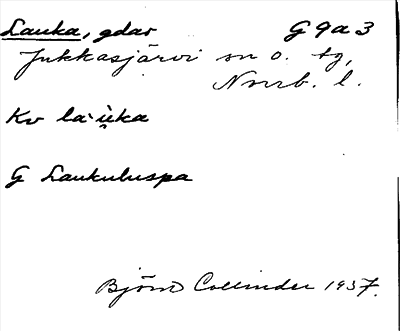 Lauka, gdar G 9a 3
Jukkasjärvi sn o. tg,
Norrb. l.
Kv la·u̯ka
G Laukuluspa
Björn Collinder 1937.